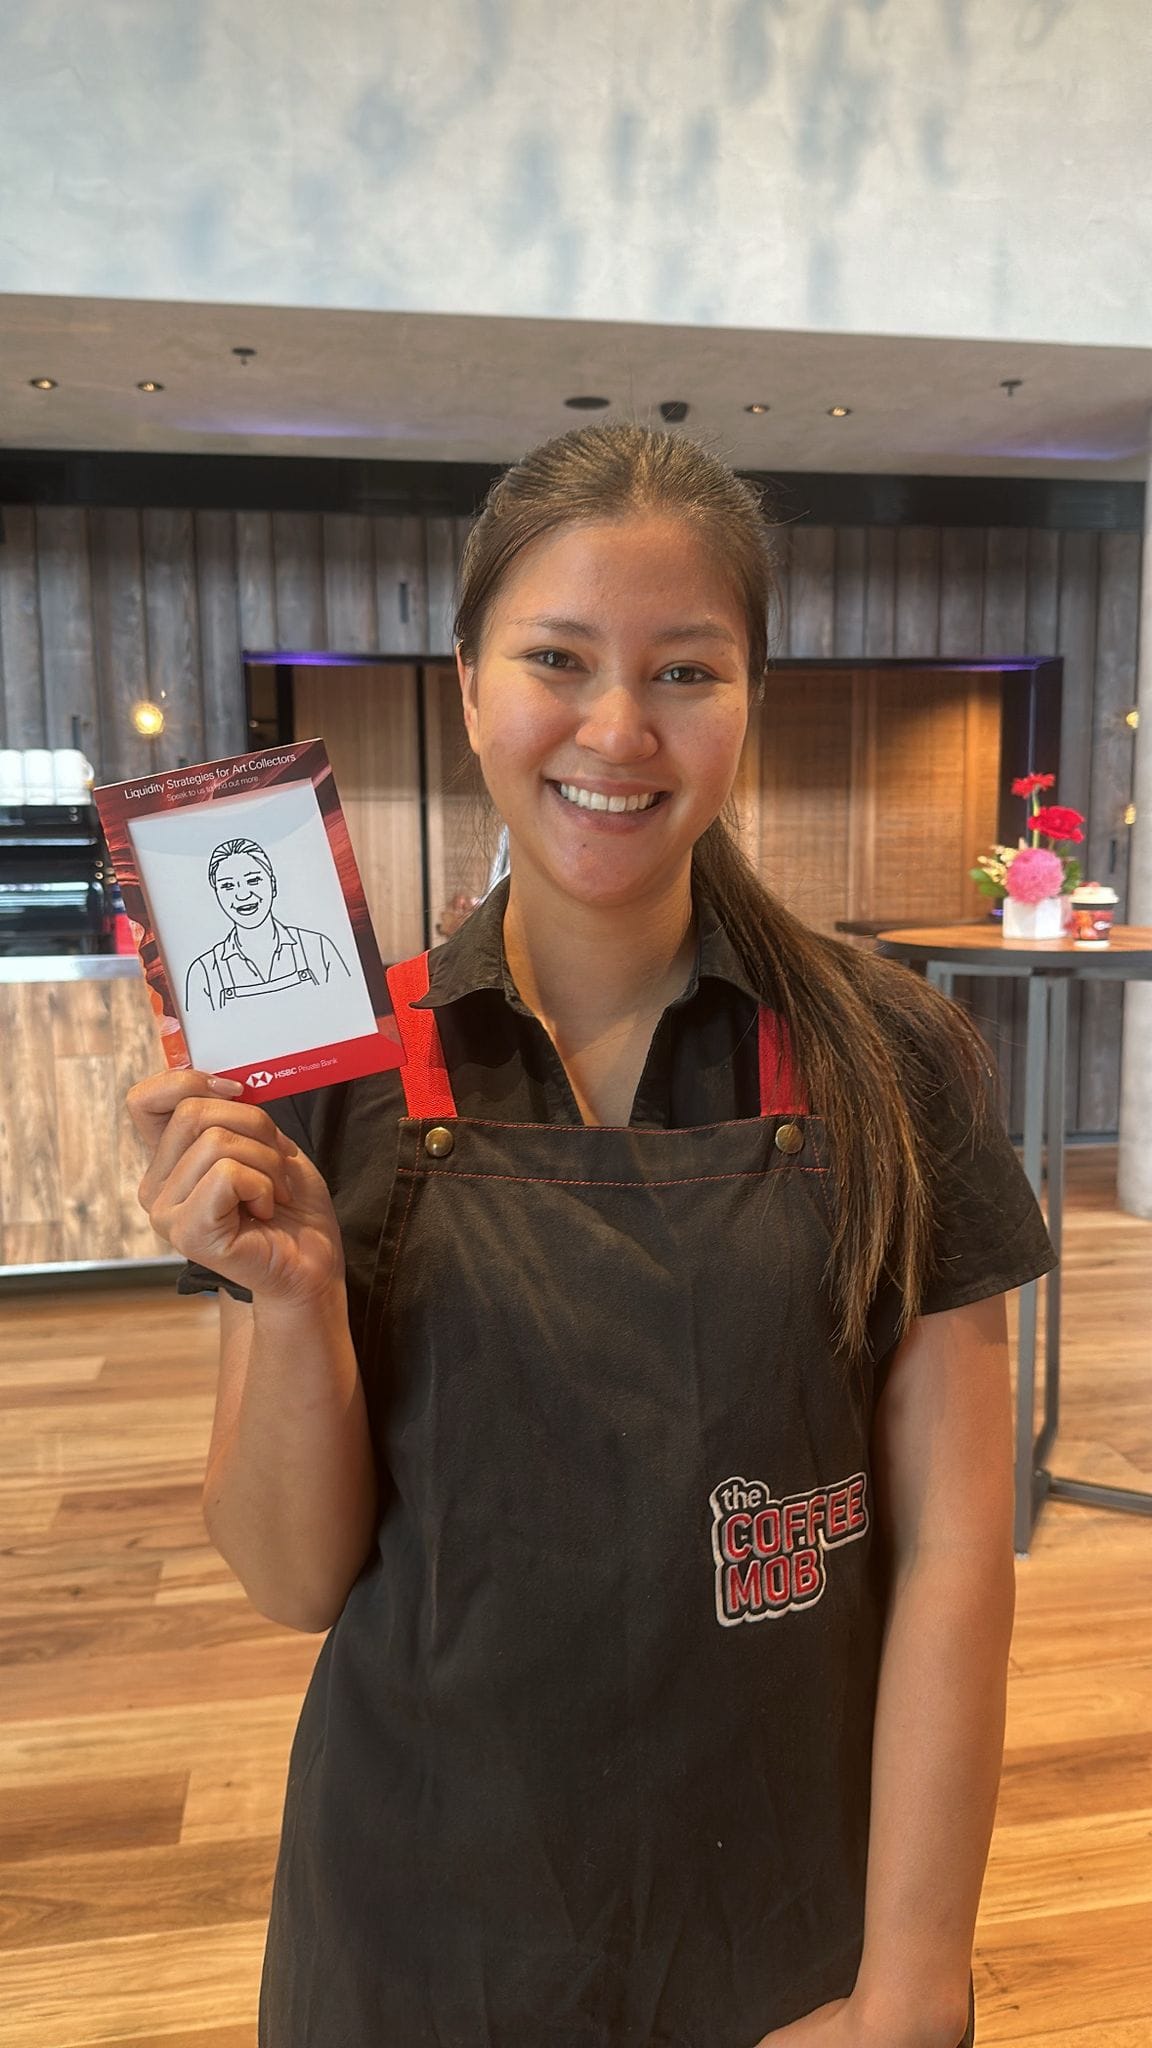 Liquidity Strategies for Art Collectors
Speak to us to find out more
HSBC Private Bank
the
COFFEE
MOB